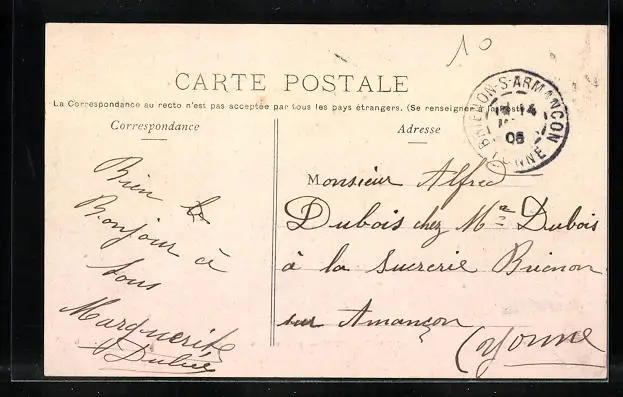 10
CARTE POSTALE
La Correspondance au recto n'est pas acceptée par tous les pays étrangers. (Se renseigner à la Poste)
Correspondance
Adresse
BRIENON-S-ARMANÇON
14
06
YONNE
Bien
Bonjour à
tous
Marguerite
Monsieur Alfred
Dubois chez Mr Dubois
à la Sucrerie Brienon
sur Amançon
(Yonne